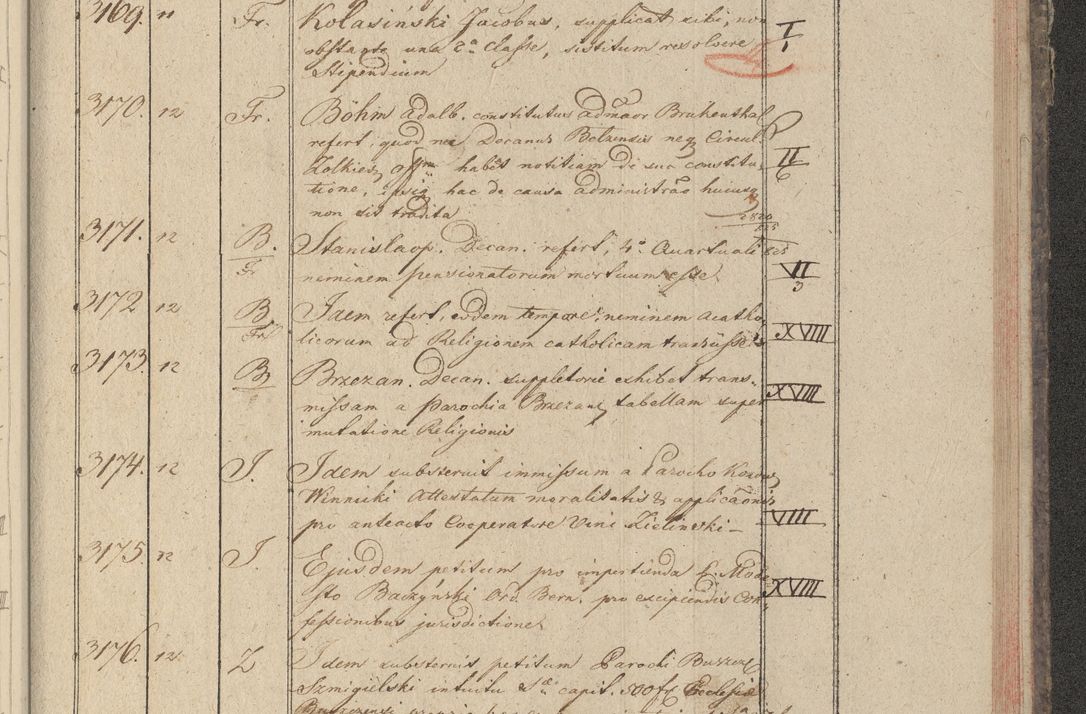 3169. 11 Fr. Kolasiński Jacobus, supplicat sibi, non I
obstante una 2a Classe, sistitum resolvere 1
Stipendium
3170. 12 Fr. Böhm Adalb. constitutus admãor Brukenthal
refert, quod nec Decanus Belzensis neq Circul.
Zolkiew habeat notitiam de sua constitu- II
tione, ipsiq hac de causa administrão huiusq 6
non sit tradita
3171. 12 B. Stanislaop. Decan. refert, 4o Quartuali
Fr neminem pensionatorum mortuum esse. VII
3
3172 12 B Idem refert, eodem tempore neminem Acatho-
Fr. licorum ad Religionem catholicam transiisse XVIII
3173. 12 B Brzezan. Decan. suppletorie exhibet trans-
missam a Parochia Brzezan tabellam super XVIII
mutatione Religionis
3174. 12 I. Idem substernit immissum a Parocho Kozow
Winnicki Attestatum moralitatis & applicaõnis
pro anteacto Cooperatore Vini Zielinski - VIII
3175. 12 I. Ejusdem petitum pro impertienda P. Mode-
sto Baczyński Ord. Bern. pro excipiendis Con- XVIII
fessionibus jurisdictione
3176. 12. Z Idem substernit petitum Parochi Buszcze
Szmigielski intuitu capit. 500 fr Ecclesiae